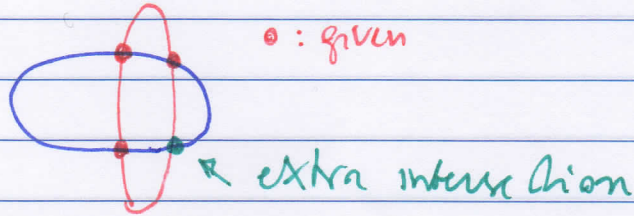 : given
extra intersection